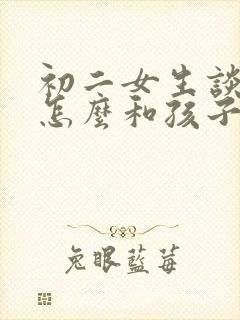 初二女生談
怎麼和孩子
兔眼藍莓